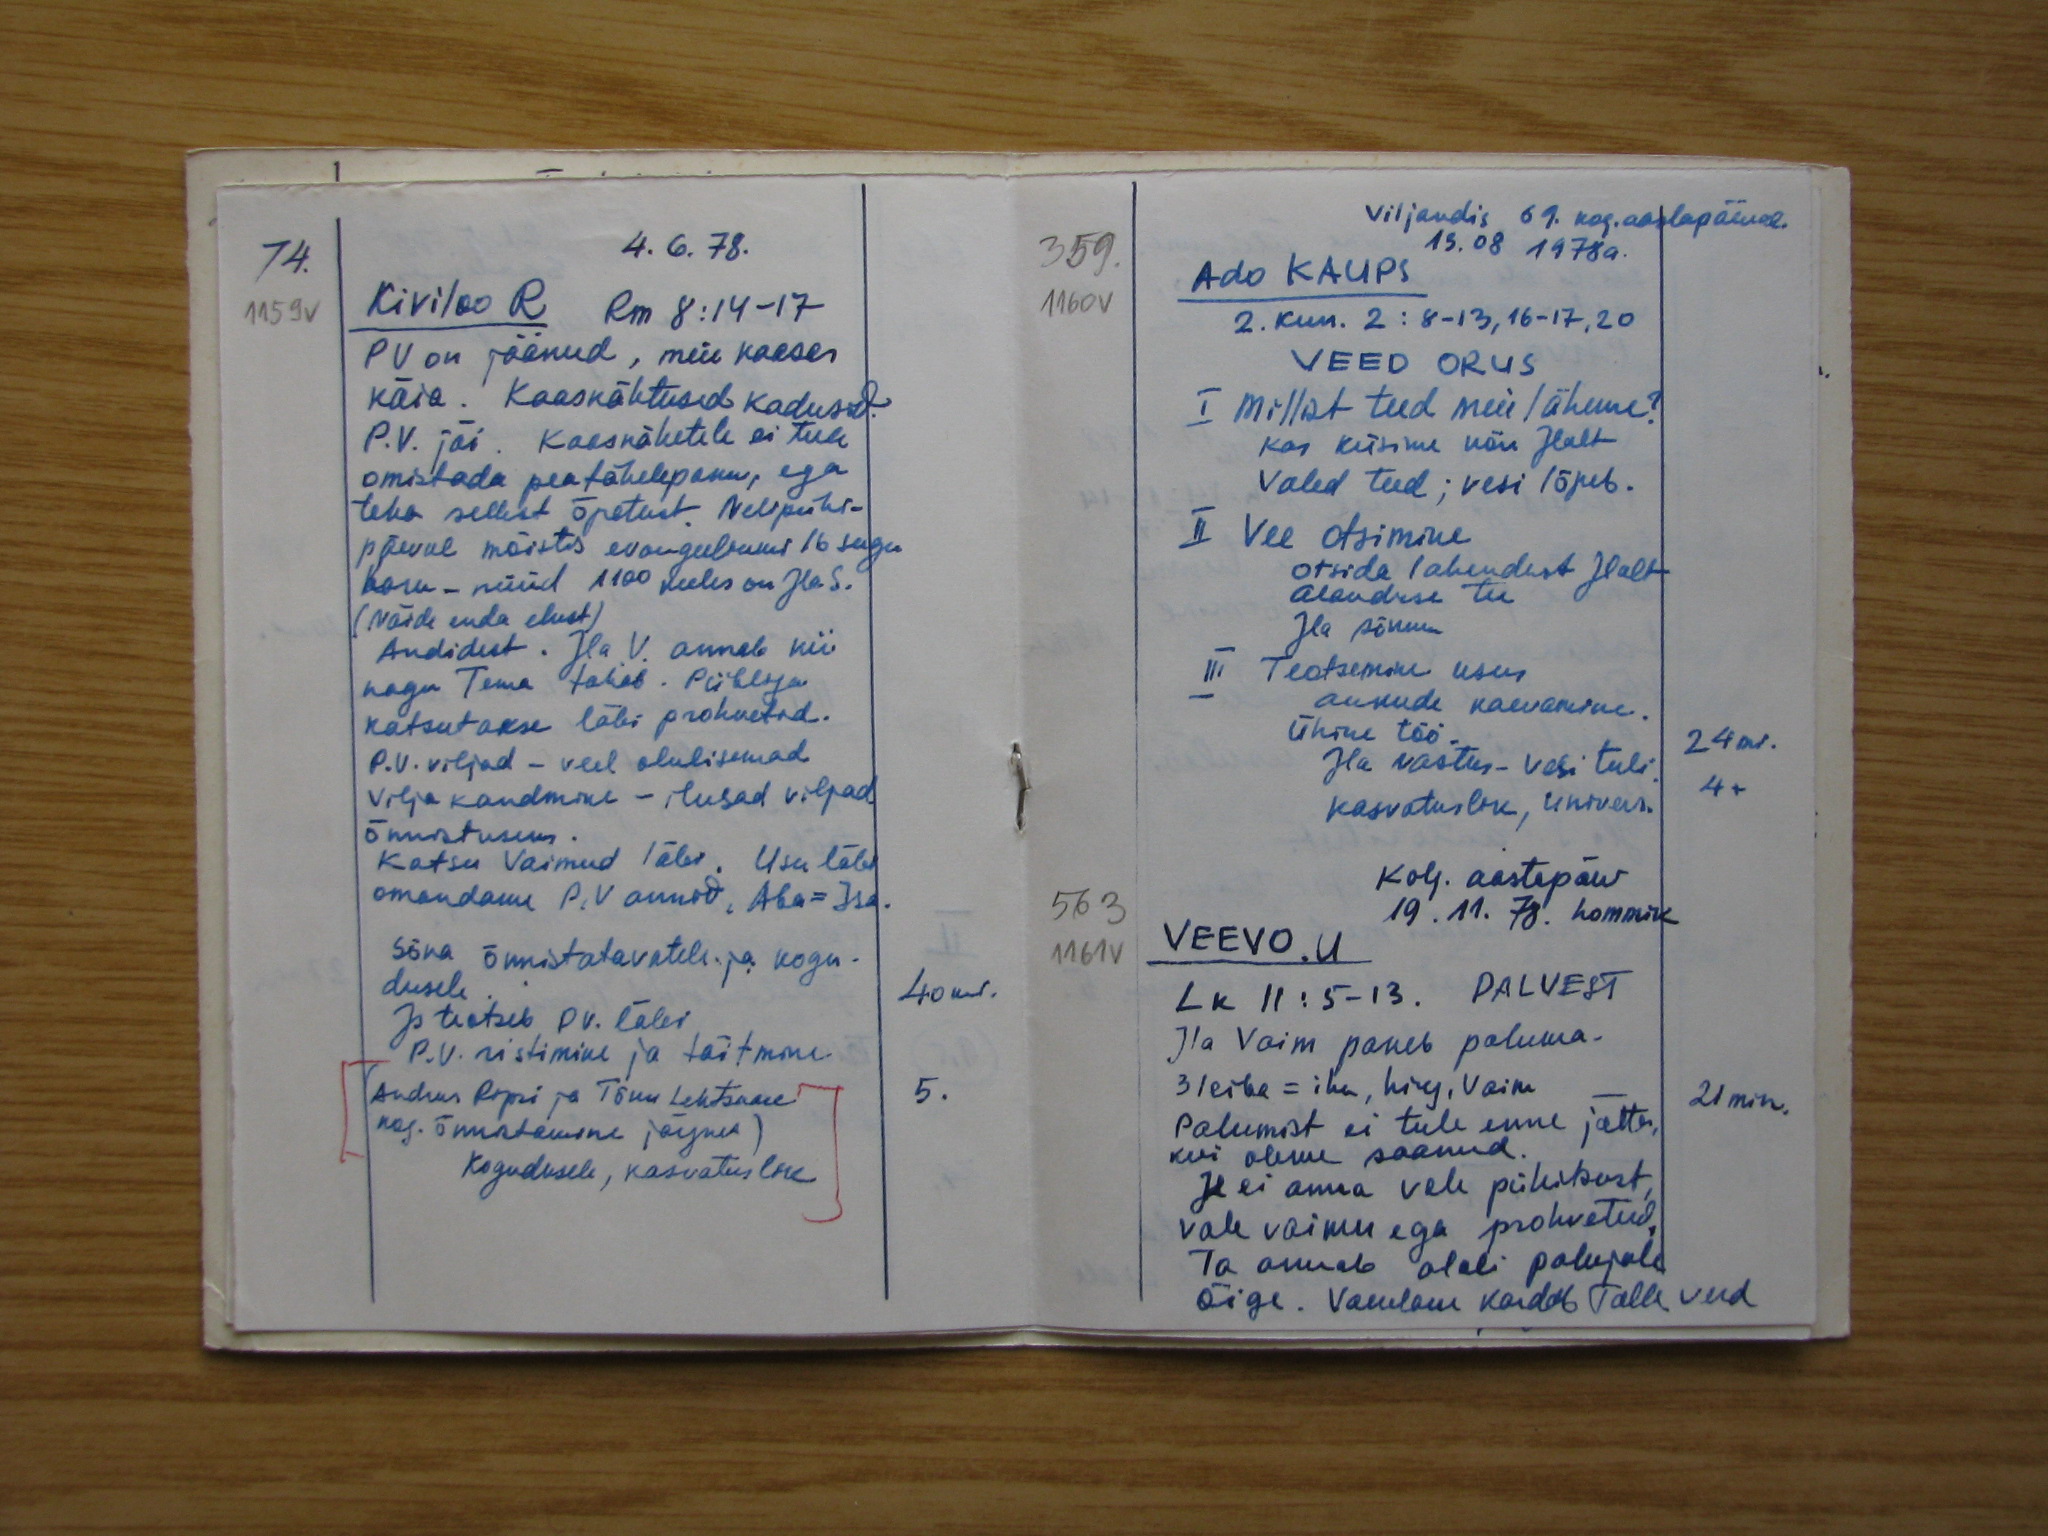 74.
1159v
4.6.78.
Kiviloo R Rm 8:14-17
PV on jäänud, meie kaasas
käia. Kaasnähtused kadusid.
P.V. jäi. Kaasnähetele ei tule
omistada peatähelepanu, ega
teha sellest õpetust. Nelipühi-
päeval mõistis evangeeliumi 16 sugu
haru - nüüd 1100 keeles on Jla S.
(Näide enda elust)
Andidest. Jla V. annab nii
nagu Tema tahab. Piibliga
katsutakse läbi prohvetid.
P.V. viljad - veel olulisemad
Vilja kandmine - ilusad viljad
õnnistuseks.
Katsu Vaimud läbi. Usu läbi
omandame P.V annid, Aba = Isa.
Sõna õnnistatavatele ja kogu-
dusele.
40 mi.
Js teotseb PV. läbi
P.V. ristimine ja täitmine
Andrus Rips ja Tõnu Lehtsaare
5.
kog. õnnistamine järgnes)
Kogudusele, kasvatuslik
359.
1160v
Viljandis 69. kog. aastapäeval.
13.08 1978a.
Ado KAUPS
2. Kun. 2 : 8-13, 16-17, 20
VEED ORUS
I Millist teed meie läheme?
Kas küsime nõu Jlalt
Valed teed; vesi lõpeb.
II Vee otsimine
otsida lahendust Jlalt
Alanduse tee
Jla sõnum
III Teotsemine usus
aukude kaevamine.
Ühine töö.
24 mi.
Jla vastus - Vesi tuli.
4+
kasvatuslik, univers.
563
1161v
Kolj. aastapäev
19.11.78. hommik
VEEVO.U
Lk 11:5-13. PALVEST
Jla Vaim paneb paluma.
3 leiba = ihu, hing, Vaim
21 min.
Palumist ei tule enne jätta,
kui oleme saanud.
Jl ei anna vale pühitsust,
vale vaimu ega prohveteid,
Ta annab alati palujale
õige. Vaenlane kardab Talle verd